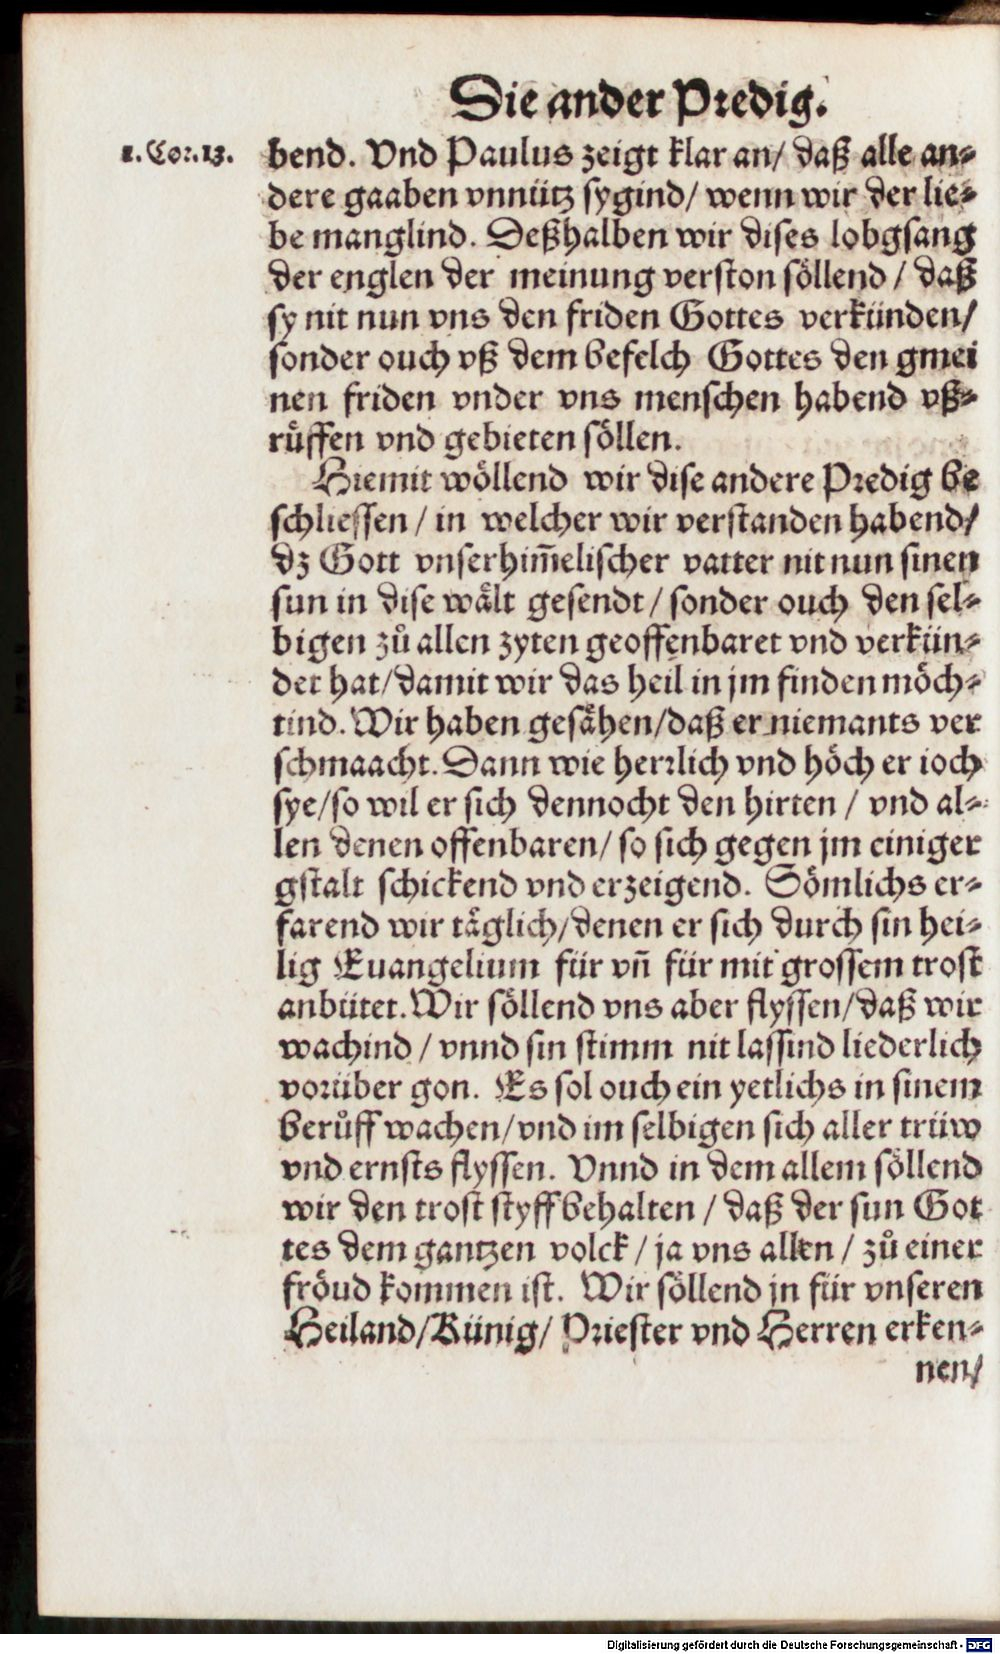 Die ander Predig.
1. Cor. 13.
bend. Vnd Paulus zeigt klar an/ daß alle an⸗
dere gaaben vnnütz sygind/ wenn wir der lie⸗
be manglind. Deßhalben wir dises lobgsang
der englen der meinung verston söllend / daß
sy nit nun vns den friden Gottes verkünden/
sonder ouch vß dem befelch Gottes den gmei
nen friden vnder vns menschen habend vß⸗
růffen vnd gebieten söllen.
Hiemit wöllend wir dise andere Predig be
schliessen / in welcher wir verstanden habend/
dz Gott vnser him̃elischer vatter nit nun sinen
sun in dise wält gesendt / sonder ouch den sel⸗
bigen zů allen zyten geoffenbaret vnd verkün⸗
det hat/ damit wir das heil in jm finden möch⸗
tind. Wir haben gesähen/ daß er niemants ver
schmaacht. Dann wie herrlich vnd höch er ioch
sye/ so wil er sich dennocht den hirten / vnd al⸗
len denen offenbaren/ so sich gegen jm einiger
gstalt schickend vnd erzeigend. Sömlichs er⸗
farend wir täglich/ denen er sich durch sin hei⸗
lig Euangelium für vñ für mit grossem trost
anbütet. Wir söllend vns aber flyssen/ daß wir
wachind / vnnd sin stimm nit lassind liederlich
vorüber gon. Es sol ouch ein yetlichs in sinem
berůff wachen/ vnd im selbigen sich aller trüw
vnd ernsts flyssen. Vnnd in dem allem söllend
wir den trost styff behalten / daß der sun Got
tes dem gantzen volck / ja vns allen / zů einer
fröud kommen ist. Wir söllend jn für vnseren
Heiland/ Künig/ Priester vnd Herren erken⸗
nen/
Digitalisierung gefördert durch die Deutsche Forschungsgemeinschaft - DFG